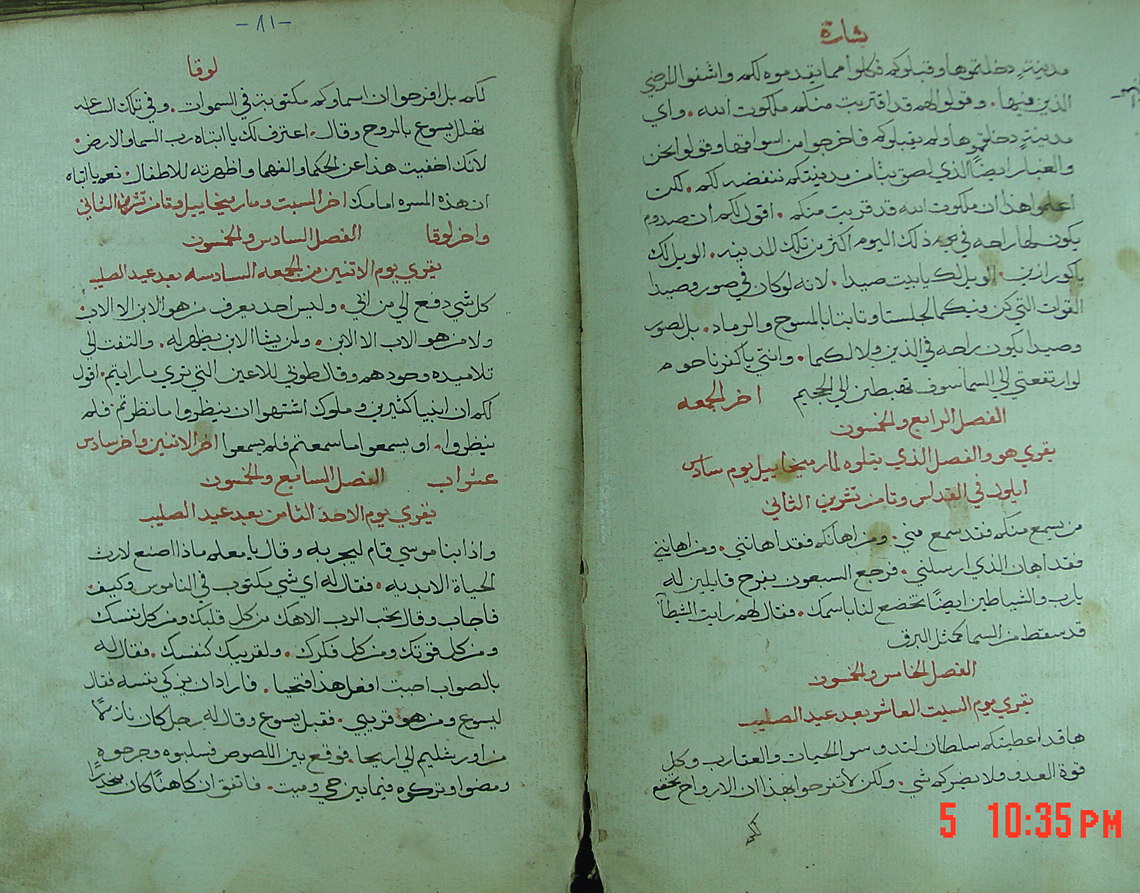 بشارة
مدينةٍ دخلتموها وقبلوكم فكلوا مما يقدموه لكم واشفوا المرضي
الذين فيها. وقولوا لهم قد اقتربت منكم ملكوت الله. واي
مدينةٍ دخلتموها ولم يقبلوكم فاخرجوا من اسواقها وقولوا نحن
والغبار ايضًا الذي لصق بنا من مدينتكم ننفضه لكم. لكن
اعلموا هذا ان ملكوت الله قد قربت منكم. اقول لكم ان صدوم
يكون لها راحه في ذلك اليوم اكثر من تلك المدينه. الويل لك
ياكورازين. الويل لك يابيت صيدا. لانه لو كان في صور وصيدا
القوات التي كن منكما لجلستا وتابتا بالمسوح والرماد. بل لصور
وصيدا تكون راحه في الدين ولا لكما. وانتي ياكفرناحوم
لو ارتفعتي الي السما سوف تهبطين الي الجحيم اخر الجمعه
الفصل الرابع والخمسون
يقري هو والفصل الذي يتلوه لمار ميخاييل يوم سادس
ايلول في القداس وثامن تشرين الثاني
من يسمع منكم فقد سمع مني. ومن اهانكم فقد اهانني. ومن اهانني
فقد اهان الذي ارسلني. فرجع السبعون بفرح قايلين له
يارب والشياطين ايضًا تخضع لنا باسمك. فقال لهم رايت الشيطان
قد سقط من السما كمثل البرق
الفصل الخامس والخمسون
يقري يوم السبت العاشر بعد عيد الصليب
ها قد اعطيتكم سلطان لتدوسوا الحيات والعقارب وكل
قوة العدو ولا يضركم شي. ولكن لا تفرحوا بهذا ان الارواح تخضع
لكم
-٨١-
لوقا
لكم بل افرحوا ان اسماوكم مكتوبة في السموات. وفي تلك الساعه
تهلل يسوع بالروح وقال. اعترف لك يا ابتاه رب السما والارض.
لانك اخفيت هذا عن الحكما والفهما واظهرته للاطفال. نعم يا ابتاه
ان هذه المسره امامك اخر السبت ومار ميخاييل وثامن تشرين الثاني
واخر لوقا الفصل السادس والخمسون
يقري يوم الاثنين من الجمعه السادسه بعد عيد الصليب
كل شي دفع الي من ابي. وليس احد يعرف من هو الابن الا الاب
ولا من هو الاب الا الابن. ولمن يشا الابن يظهر له. والتفت الي
تلاميذه وحدهم وقال طوبي للاعين التي تري ما رايتم. اقول
لكم ان انبيا كثيرين وملوك اشتهوا ان ينظروا ما نظرتم فلم
ينظروا. او يسمعوا ما سمعتم فلم يسمعوا اخر الاثنين واخر سادس
الفصل السابع والخمسون
يقري يوم الاحد الثامن بعد عيد الصليب
واذا بناموسي قام ليجربه وقال يا معلم ماذا اصنع لارث
الحياة الابديه. فقال له اي شي مكتوب في الناموس وكيف
فاجاب وقال تحب الرب الاهك من كل قلبك ومن كل نفسك
ومن كل قوتك ومن كل فكرك. ولقريبك كنفسك. فقال له
بالصواب اجبت افعل هذا فتحيا. فاراد ان يزكي نفسه فقال
ليسوع ومن هو قريبي. فقبل يسوع وقال له رجل كان نازلًا
من اورشليم الي اريحا. فوقع بين اللصوص فسلبوه وجرحوه
ومضوا وتركوه فيما بين حي وميت. فاتفق ان كاهنًا كان منحدرًا
5 10:35 PM